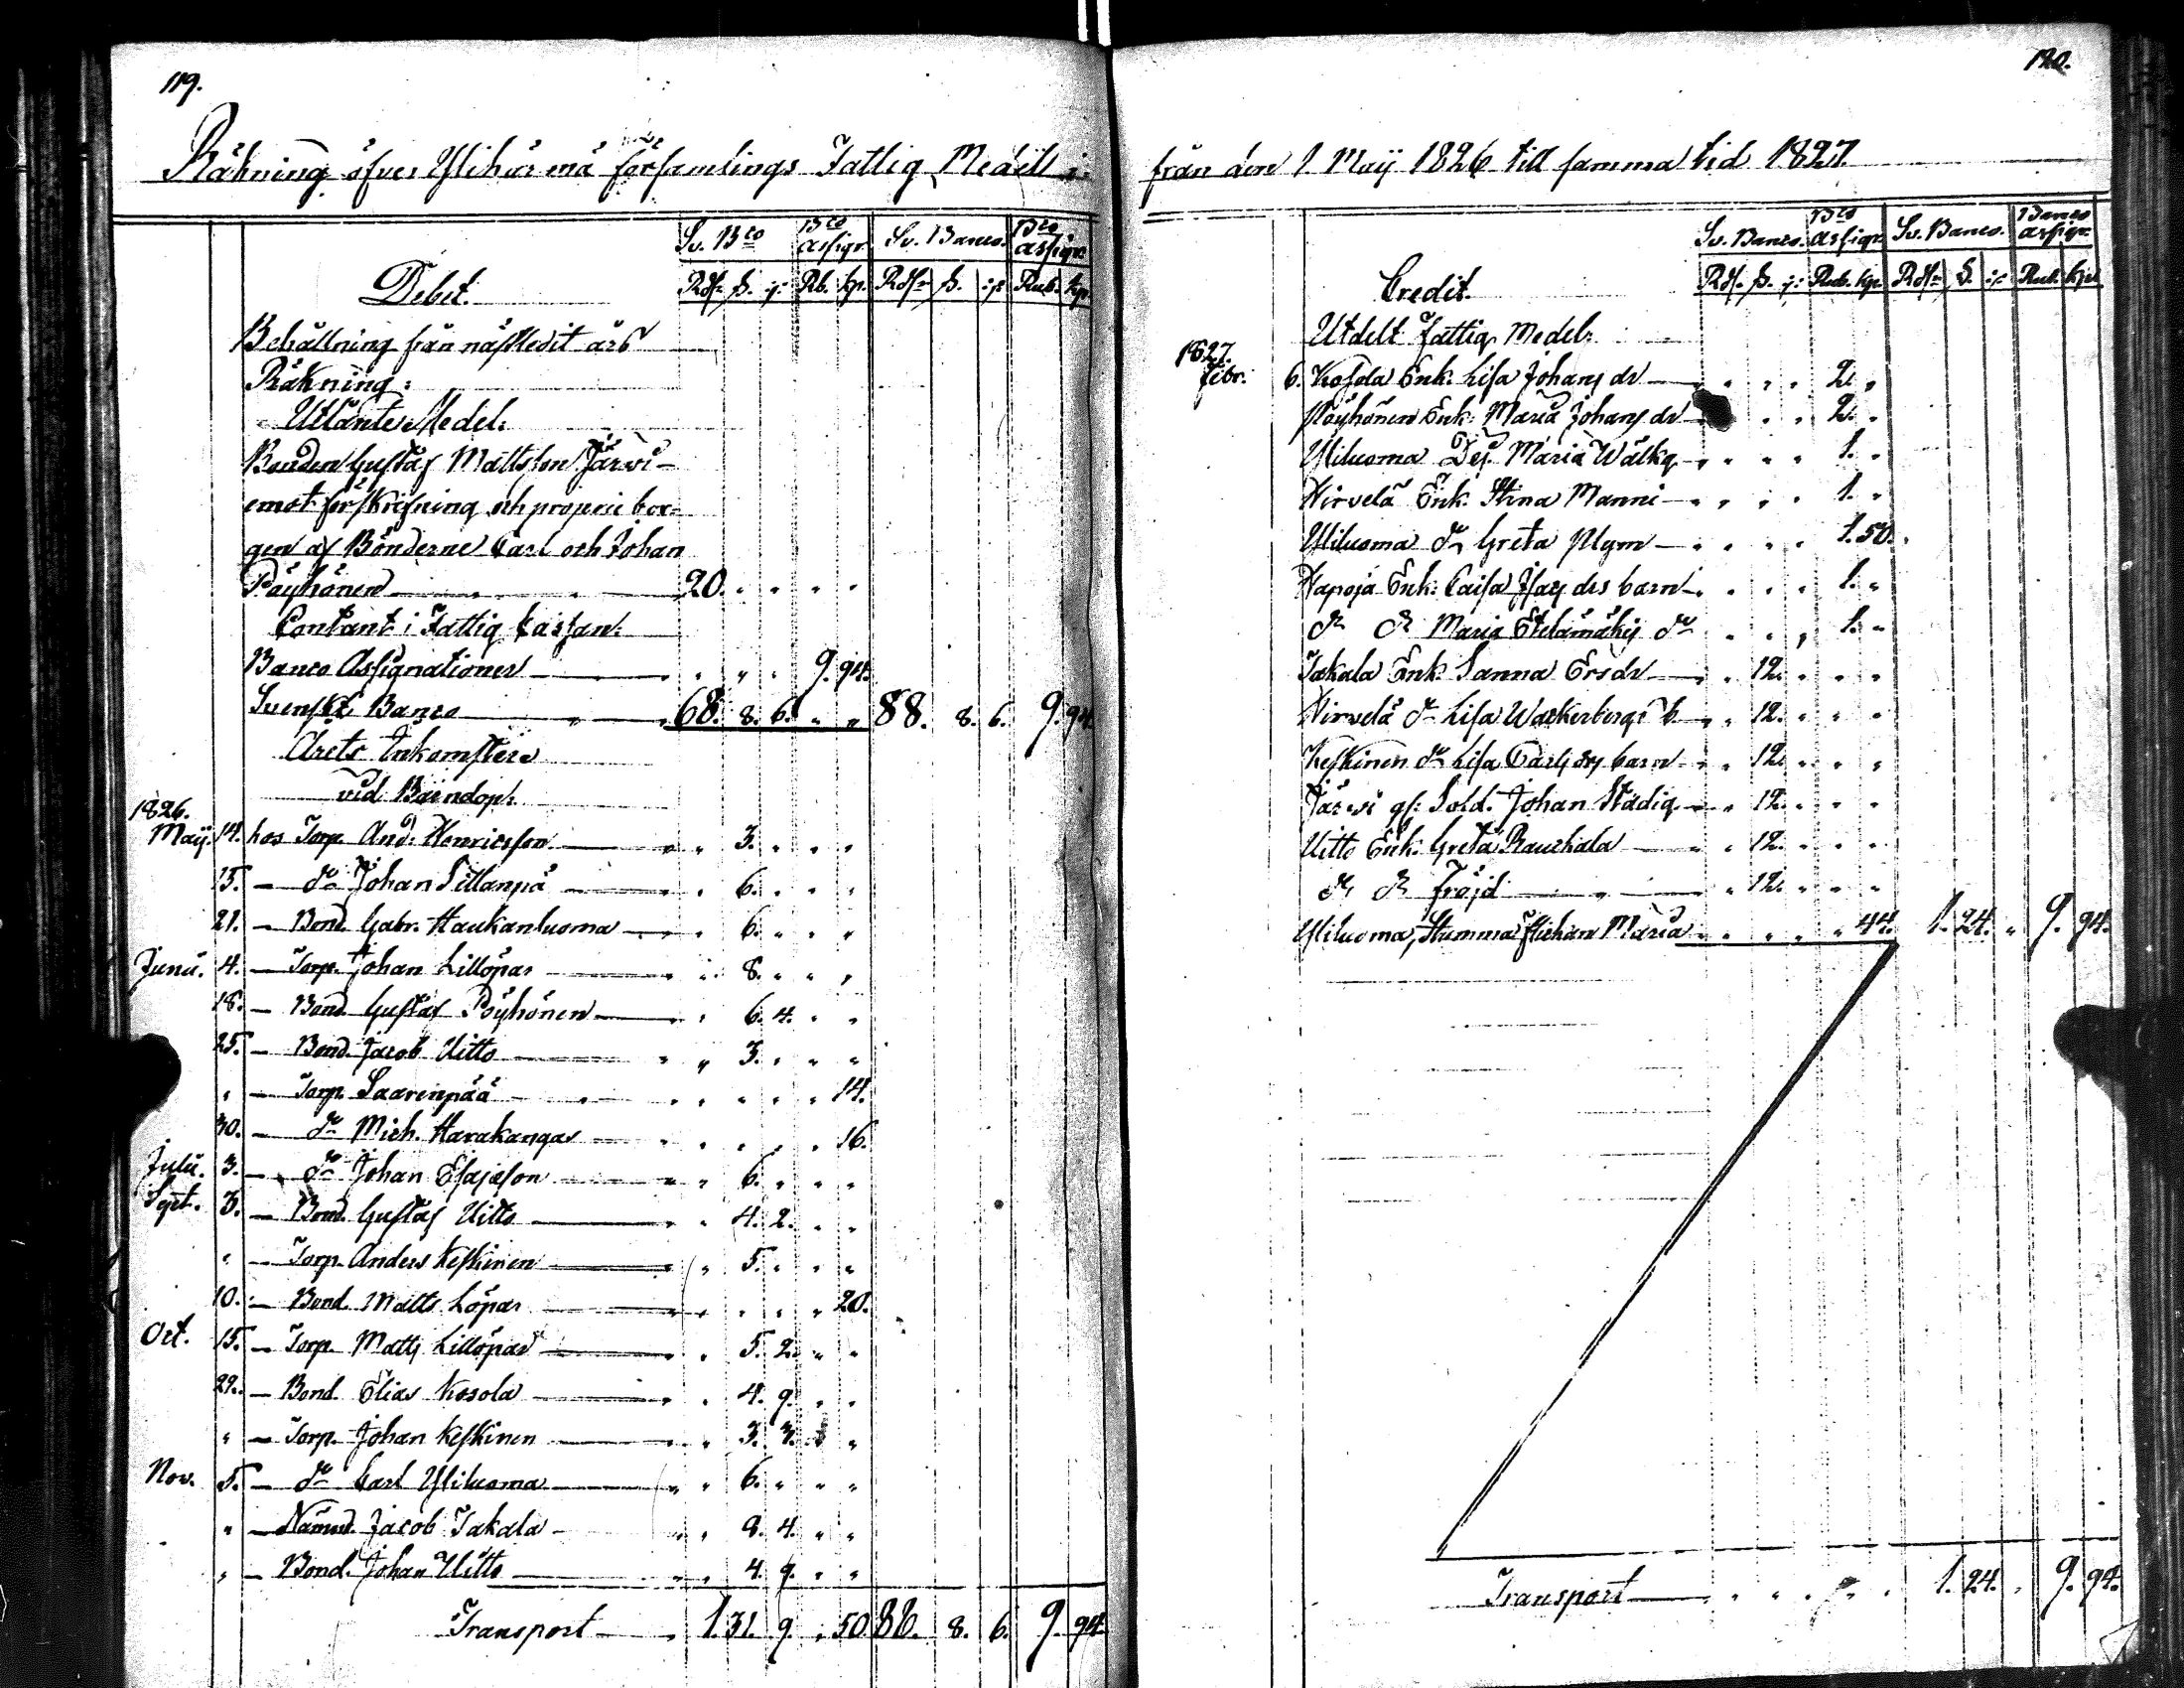 119.
Räkning öfver Ylihärmä församlings Fattig Medel
Sv. Bco Bco assign. Sv. Banco. Bco assign.
Debet. Rd. ß. Rb. kp. Rd. ß. Rub. kp.
Behållning från nästledit års
Räkning:
Utlånte Medel:
Bonden Gustaf Mattsson Järvi
emot förskrifning och proprie bor-
gen af Bönderne Carl och Johan
Pöyhönen 20. " " " "
Contant i Fattig Cassan:
Banco Assignationer " " " 9. 94.
Svenske Banco 68. 8. 6. " " 88. 8. 6. 9. 94
Årets Inkomster
vid Barndop:
1826.
Maij. 14. hos Torp. And. Henricsson " 3. " " "
15. — do Johan Sillanpä " 6. " " "
21. — Bond. Gabr. Haukanluoma " 6. " " "
Junii. 4. — Torp. Johan Lillöpar " 8. " " "
18. — Bond. Gustaf Pöyhönen " 6. 4. " "
25. — Bond. Jacob Uitto " 3. " " "
" — Torp. Saarenpää " " " " 14.
30. — do Mich. Harakangas " " " " 16.
Julii. 3. — do Johan Esajeson " 6. " " "
Sept. 3. — Bond. Gustaf Uitto " 4. 2. " "
" — Torp. Anders Keskinen " 5. " " "
10. — Bond. Matts Löpar " " " " 20.
Oct. 15. — Torp. Matts Lillöpar " 5. 2. " "
29. — Bond. Elias Kosola " 4. 9. " "
" — Torp. Johan Keskinen " 3. 3. " "
Nov. 5. — do Carl Yliluoma " 6. " " "
" — Nämd. Jacob Takala " 8. 4. " "
" — Bond. Johan Uitto " 4. 9. " "
Transport 1. 31. 9. " 50 86. 8. 6. 9. 94
120.
från den 1 Maij 1826 till samma tid 1827
Sv. Banco. Bco assign. Sv. Banco. Banco assign.
Credit. Rd. ß. Rub. kp. Rd. ß. Rub. kp.
Utdelt Fattig Medel:
1827.
Febr. 6. Kosola Enk. Lisa Johans dr " " " 2. "
Pöyhönen Enk. Maria Johans dr " " 2. "
Yliluoma Dej. Maria Wälkg " " " 1. "
Hirvelä Enk. Stina Manni " " " 1. "
Yliluoma do Greta Plym " " " 1. 50.
Hapoja Enk. Caisa Isas drs barn " " " 1. "
do do Maria Etelämäkis do " " " 1. "
Takala Enk. Sanna Ersdr " 12. " " "
Hirvelä do Lisa Wackerbergs b. " 12. " " "
Keskinen do Lisa Carls drs barn " 12. " " "
Järvi gf. Sold. Johan Städig " 12. " " "
Uitto Enk. Greta Rauhala " 12. " " "
do do Fröjd " 12. " " "
Yliluoma, Stumma flickan Maria " " " " 44. 1. 24. " 9. 94.
Transport " " " " " 1. 24. " 9. 94.